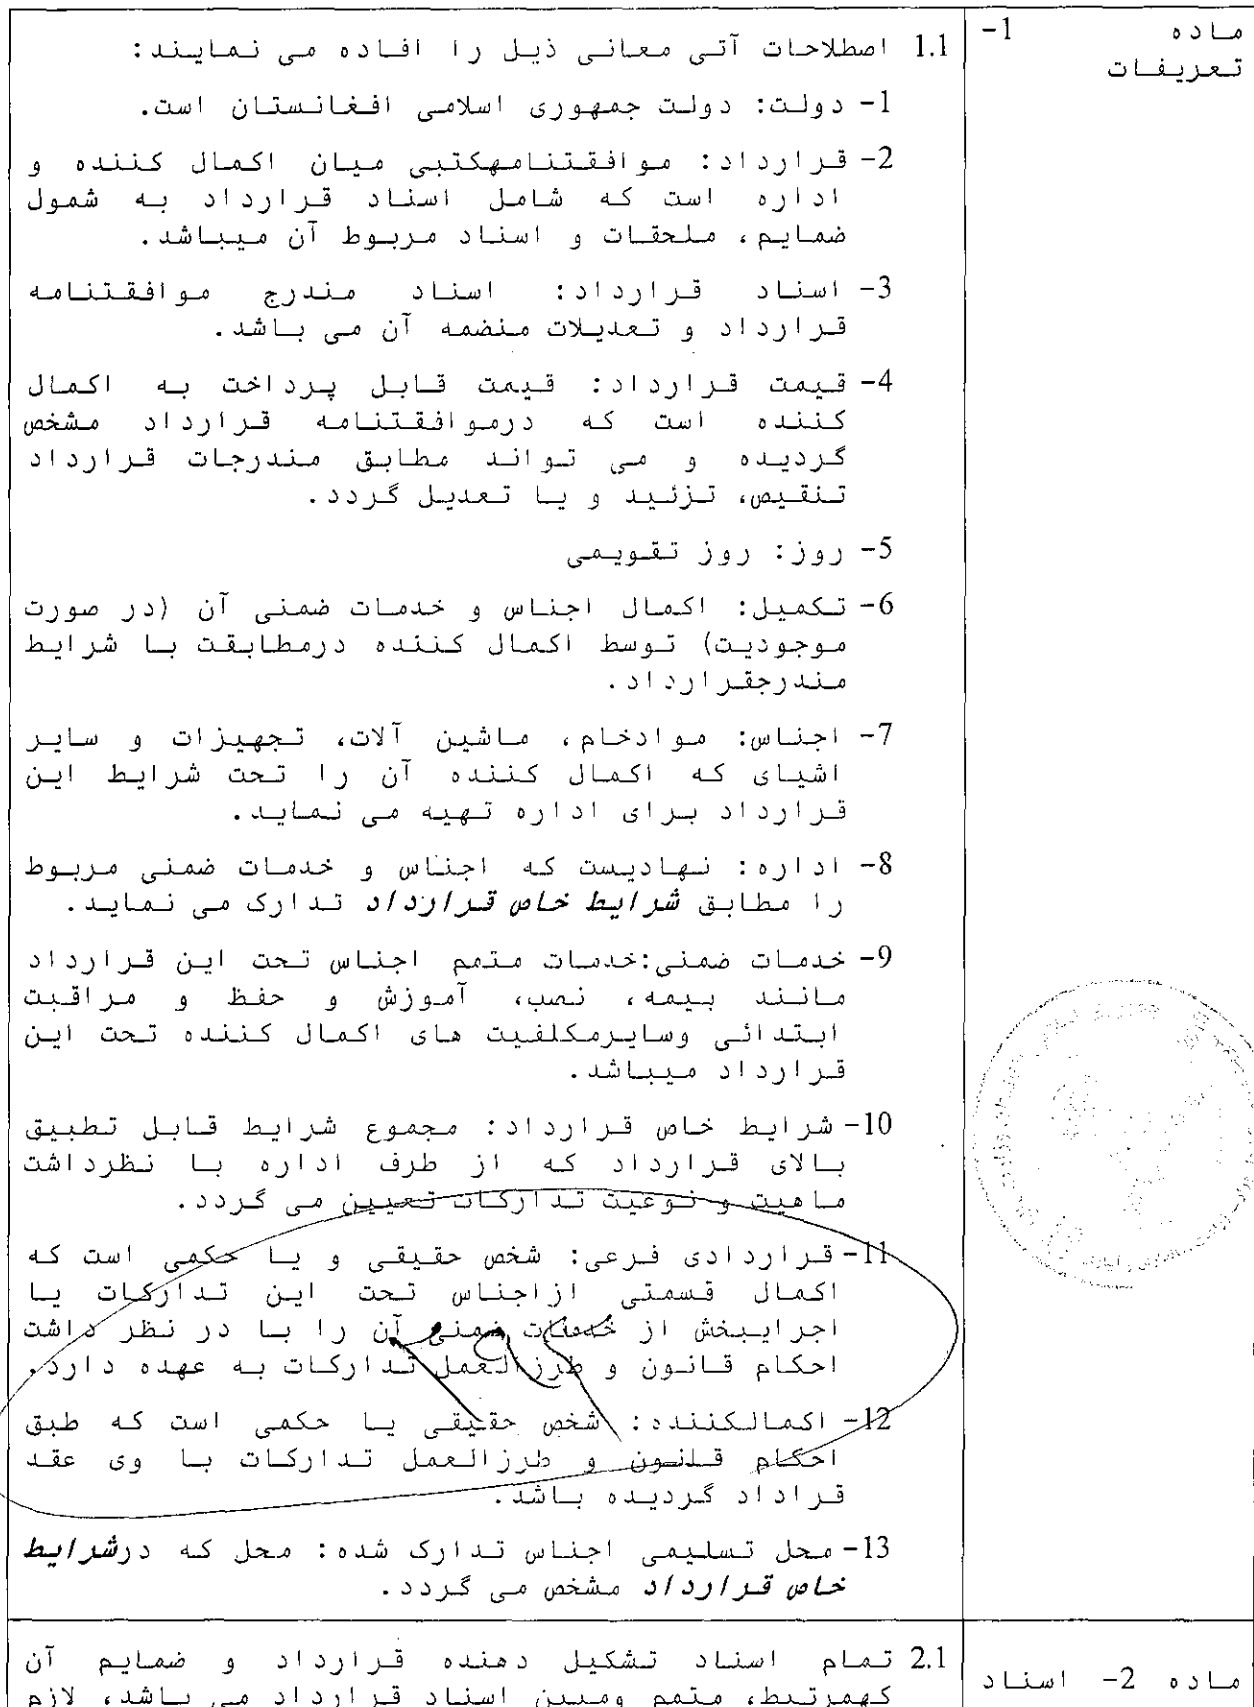 ماده 1-
تعریفات
1.1 اصطلاحات آتی معانی ذیل را افاده می نمایند:
1- دولت: دولت جمهوری اسلامی افغانستان است.
2- قرارداد: موافقتنامهکتبی میان اکمال کننده و
اداره است که شامل اسناد قرارداد به شمول
ضمایم، ملحقات و اسناد مربوط آن میباشد.
3- اسناد قرارداد: اسناد مندرج موافقتنامه
قرارداد و تعدیلات منضمه آن می باشد.
4- قیمت قرارداد: قیمت قابل پرداخت به اکمال
کننده است که درموافقتنامه قرارداد مشخص
گردیده و می تواند مطابق مندرجات قرارداد
تنقیص، تزئید و یا تعدیل گردد.
5- روز: روز تقویمی
6- تکمیل: اکمال اجناس و خدمات ضمنی آن (در صورت
موجودیت) توسط اکمال کننده درمطابقت با شرایط
مندرجقرارداد.
7- اجناس: موادخام، ماشین آلات، تجهیزات و سایر
اشیای که اکمال کننده آن را تحت شرایط این
قرارداد برای اداره تهیه می نماید.
8- اداره: نهادیست که اجناس و خدمات ضمنی مربوط
را مطابق شرایط خاص قرارداد تدارک می نماید.
9- خدمات ضمنی:خدمات متمم اجناس تحت این قرارداد
مانند بیمه، نصب، آموزش و حفظ و مراقبت
ابتدائی وسایرمکلفیت های اکمال کننده تحت این
قرارداد میباشد.
10- شرایط خاص قرارداد: مجموع شرایط قابل تطبیق
بالای قرارداد که از طرف اداره با نظرداشت
ماهیت و نوعیت تدارکات تعیین می گردد.
11- قراردادی فرعی: شخص حقیقی و یا حکمی است که
اکمال قسمتی ازاجناس تحت این تدارکات یا
اجرایبخش از خدمات ضمنی آن را با در نظر داشت
احکام قانون و طرزالعمل تدارکات به عهده دارد.
12- اکمالکننده: شخص حقیقی یا حکمی است که طبق
احکام قانون و طرزالعمل تدارکات با وی عقد
قراداد گردیده باشد.
13- محل تسلیمی اجناس تدارک شده: محل که درشرایط
خاص قرارداد مشخص می گردد.
ماده 2- اسناد
2.1 تمام اسناد تشکیل دهنده قرارداد و ضمایم آن
کهمرتبط، متمم ومبین اسناد قرارداد می باشد، لازم